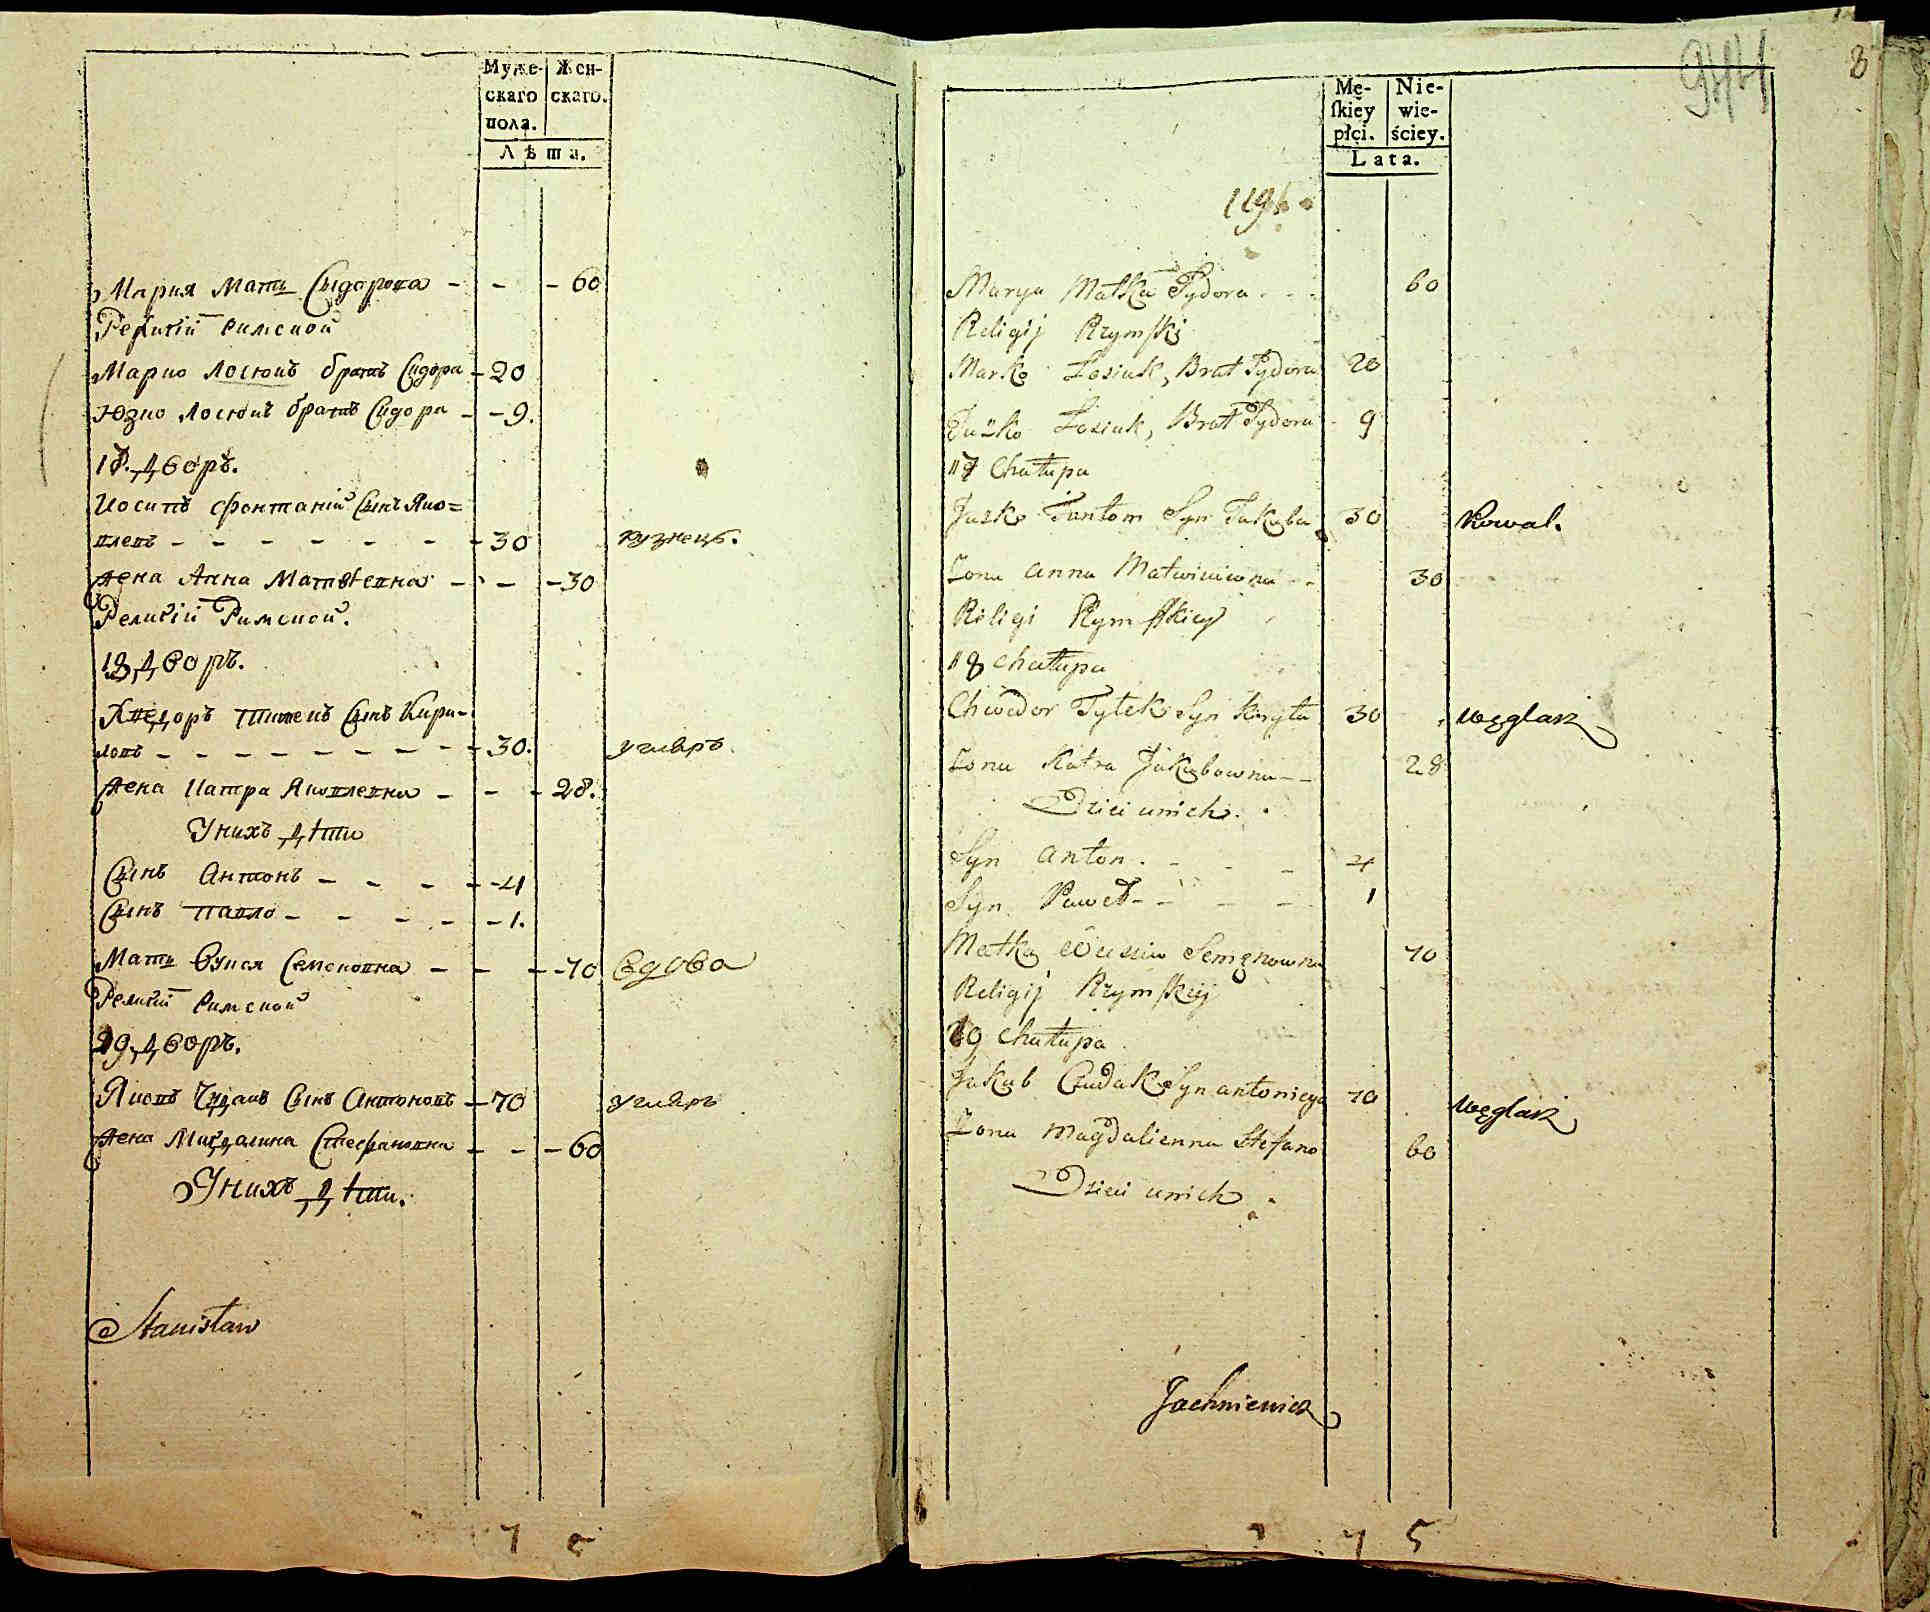 Муже-
скаго
пола.
Жен-
скаго.
Лѣта.
Мария Мать Сидорова - - - 60
Религии Римской
Марко Лосюкъ братъ Сидора - 20
Юзко Лосюкъ братъ Сидора - - 9.
17. дворъ.
Иосипъ Фонтаній Сынъ Яко=
влевъ - - - - - - - 30 кузнецъ.
жена Анна Матвѣевна - - - 30
Религии Римской.
18. дворъ.
Хведоръ Титекъ Сынъ Кири-
ловъ - - - - - - - - 30. угляръ
жена Катра Яковлевна - - - 28.
Унихъ дѣти
Сынъ Антонъ - - - - - 4
Сынъ Павло - - - - - 1.
Мать Семеновна - - - 70 вдова
Религии Римской
19. дворъ.
Яковъ Чудакъ Сынъ Антоновъ - 70 угляръ
жена Магдалина Стефановна - - - 60
Унихъ дѣти.
Stanisław
7 5
944
8
Mę-
skiey
płci.
Nie-
wie-
ściey.
Lata.
119
Marya Matka Sydora - - - 60
Religij Rzymski
Marko Łosiuk, Brat Sydora 20
Juzko Łosiuk, Brat Sydora - 9
17 Chałupa
Juzko Fantom Syn Jakuba 30 Kowal.
Żona Anna Matwieiewna - - 30
Religi Rzymskiey
18 chałupa
Chwedor Tytek Syn Kiryła 30 węglarz
Żona Katra Jakubowna - - 28
Dzieci unich.
Syn Anton. - - - 4
Syn Paweł - - - - 1
Matka Semenowna 70
Religij Rzymskiej
19 Chałupa
Jakub Czudak Syn antoniego 70 węglarz
Żona Magdalienna Stefano 60
Dzieci unich.
Jachniewicz
7 5